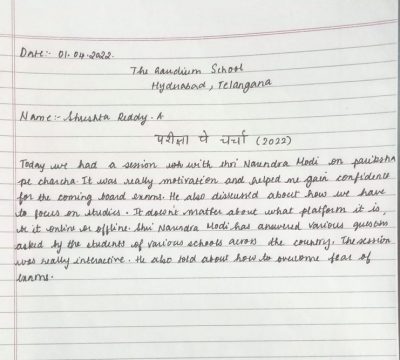 Date:- 01.04.2022.
The Gaudium School
Hyderabad, Telangana
Name:- Shreshta Reddy. A
परीक्षा पे चर्चा (2022)
Today we had a session with shri Narendra Modi on pariksha
pe charcha. It was really motivation and helped me gain confidence
for the coming board exams. He also discussed about how we have
to focus on studies. It doesn't matter about what platform it is,
be it online or offline. Shri Narendra Modi has answered various questions
asked by the students of various schools across the country. The session
was really interactive. He also told about how to overcome fear of
exams.